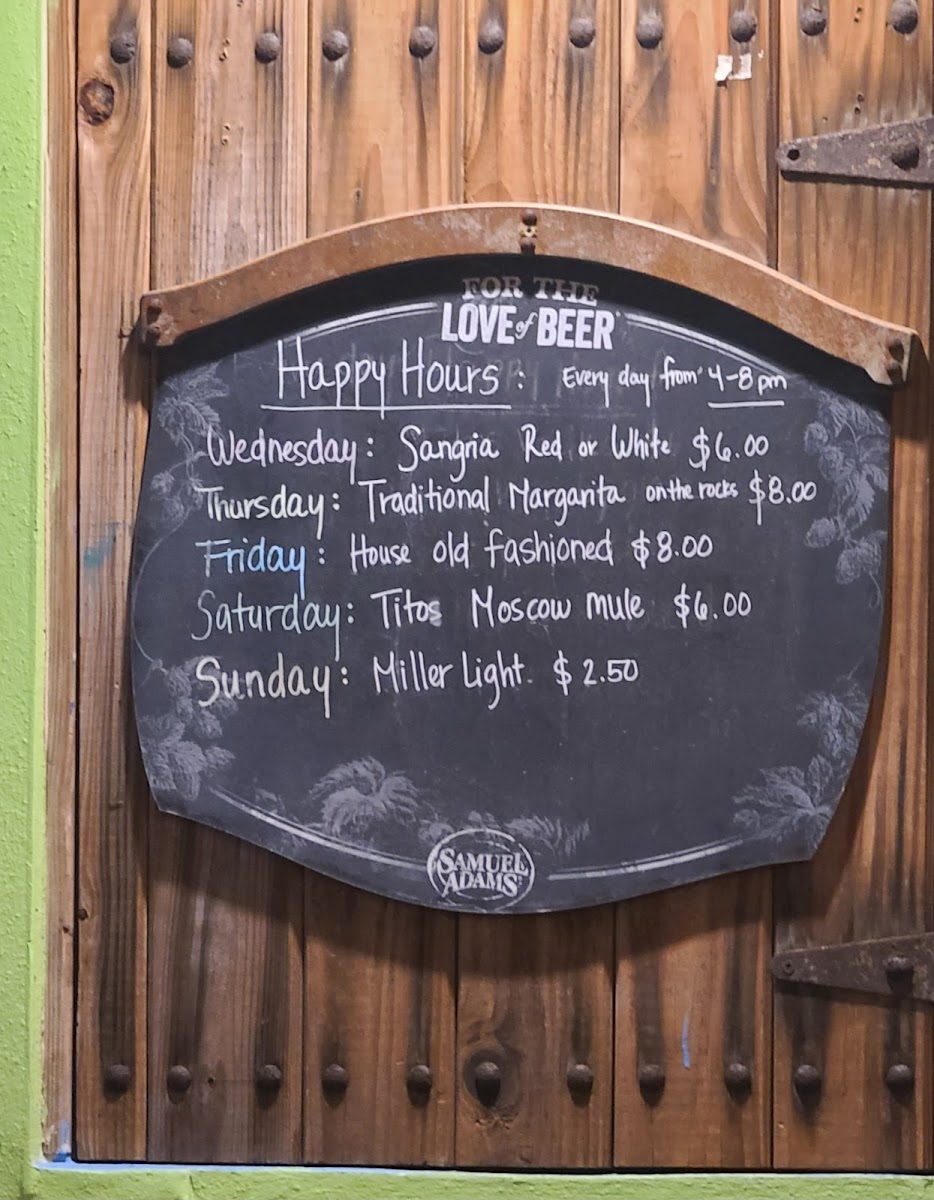 FOR THE
LOVE of BEER
Happy Hours : Every day from 4-8 pm
Wednesday : Sangria Red or White $6.00
Thursday : Traditional Margarita on the rocks $8.00
Friday : House old fashioned $8.00
Saturday : Titos Moscow mule $6.00
Sunday : Miller Light. $2.50
SAMUEL
ADAMS